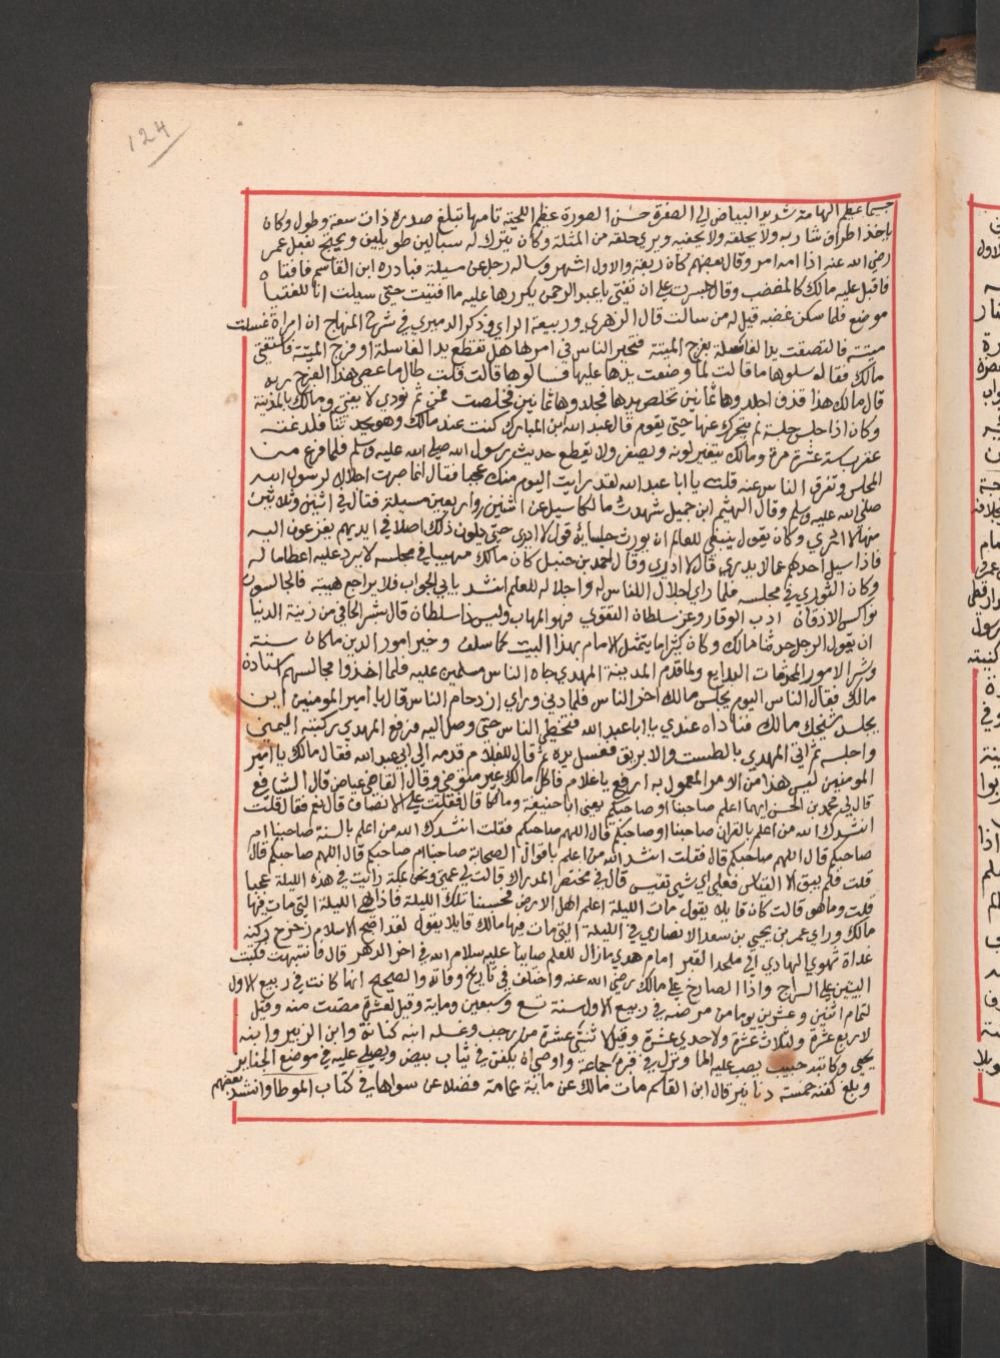 124
جسيما عظيم الهامة شديد البياض الى الصفرة حسن الصورة عظيم اللحية تامها تبلغ صدره ذات سعة وطول وكان
ياخذ اطراف شاربه ولا يحلقه ولا يحفيه ويري حلقه من المثلة وكان يترك له سبالين طويلين ويحتج بفعل عمر
رضي الله عنه اذا امه امر وقال بعضهم كان ربعة والاول اشهر وساله رجل عن مسيلة فبادره ابن القاسم فافتاه
فاقبل عليه مالك كالمغضب وقال جسرت على ان تفتي يا عبد الرحمن يكررها عليه ما افتيت حتى سيلت انا للفتيا
موضع فلما سكن غضبه قيل له من سالت قال الزهري وربيعة الراي وذكر الدميري في شرح المنهاج ان امراة غسلت
ميتة فالتصقت يد الغاسلة بفرج الميتة فتحير الناس في امرها هل تقطع يد الغاسلة او فرج الميتة فاستفتي
مالك فقال سلوها ما قالت لما وضعت يدها عليها فسالوها قالت قلت طال ما عصى هذا الفرج ربه
قال مالك هذا قذف اجلدوها ثمانين تخلص يدها فجلدوها ثمانين فخلصت فمن ثم نودي لا يفتى ومالك بالمدينة
وكان اذا جلس جلسة لم يتحرك عنها حتى يقوم قال عبد الله بن المبارك كنت عند مالك وهو يحدثنا فلدغته
عقرب ستة عشرة مرة ومالك يتغير لونه ويصفر ولا يقطع حديث رسول الله صلى الله عليه وسلم فلما فرغ من
المجلس وتفرق الناس عنه قلت يا ابا عبد الله لقد رايت اليوم منك عجبا فقال انما صبرت اجلالا لرسول الله
صلى الله عليه وسلم وقال الهيثم ابن جميل شهدت مالكا سيل عن اثنين واربعين مسيلة فقال في اثنين وثلاثين
منها لا ادري وكان يقول ينبغي للعالم ان يورث جلساءه قول لا ادري حتى يكون ذلك اصلا في ايديهم يفزعون اليه
فاذا سيل احدهم عما لا يدري قال لا ادري وقال احمد بن حنبل كان مالك مهيبا في مجلسه لا يرد عليه اعظاما له
وكان الثوري في مجلسه فلما راي اجلال الناس له واجلاله للعلم انشد يابى الجواب فلا يراجع هيبة فالجالسون
نواكس الاذقان ادب الوقار وعز سلطان التقوي فهو المهاب وليس ذا سلطان قال بشر الحافي من زينة الدنيا
ان يقول الرجل حدثنا مالك وكان كثيرا ما يتمثل الامام بهذا البيت كما سلف وخير امور الدين ما كان سنة
وشر الامور المحدثات البدايع ولما قدم المدينة المهدي جاه الناس مسلمين عليه فلما اخذوا مجالسهم استاذن
مالك فقال الناس اليوم يجلس مالك اخر الناس فلما دني وراي ازدحام الناس قال يا امير المومنين اين
يجلس شيخك مالك فناداه عندي يا ابا عبد الله فتخطي الناس حتى وصل اليه فرفع المهدي ركبته اليمني
واجلسه ثم اتي المهدي بالطست والابريق فغسل يده ثم قال للغلام قدمه الى ابي عبد الله فقال مالك يا امير
المومنين ليس هذا من الامر المعمول به ارفع يا غلام فاكل مالك غير متوضي وقال القاضي عياض قال الشافعي
قال لي محمد بن الحسن ايهما اعلم صاحبنا او صاحبكم يعني ابا حنيفة ومالكا قال فقلت على الانصاف قال نعم فقال قلت
انشدك الله من اعلم بالقران صاحبنا او صاحبكم قال اللهم صاحبكم فقلت انشدك الله من اعلم بالسنة صاحبنا ام
صاحبكم قال اللهم صاحبكم قال فقلت انشد الله من اعلم باقوال الصحابة صاحبنا ام صاحبكم قال اللهم صاحبكم قال
قلت فلم يبق الا القياس فعلى اي شي تقيس قال في مختصر المدرك قالت لي عمتي ونحن بمكة رايت في هذه الليلة عجبا
قلت وما هو قالت كان قايلا يقول مات الليلة اعلم اهل الارض فحسبنا تلك الليلة فاذا هي الليلة التي مات فيها
مالك وراي عمر بن يحيي بن سعد الانصاري في الليلة التي مات فيها مالك قايلا يقول لقد اصبح الاسلام زحزح ركنه
غداة ثوي الهادي الى ملحد القبر امام هدي ما زال للعلم صاينا عليه سلام الله في اخر الدهر قال فانتبهت فكتبت
البيتين على السراج واذا الصارخ على مالك رضي الله عنه واختلف في تاريخ وفاته والصحيح انها كانت في ربيع الاول
لتمام اثنين وعشرين يوما من مرضه في ربيع الاول سنة تسع وسبعين وماية وقيل لعشرة مضت منه وقيل
لاربع عشرة ولثلاث عشرة ولاحدي عشرة وقيل لاثنتي عشرة من رجب وغسله ابنه كنانة وابن الزبير وابنه
يحيي وكاتبه حبيب يصب عليه الما ونزل في قبره جماعة واوصي ان يكفن في ثياب بيض ويصلي عليه في موضع الجنايز
وبلغ كفنه خمسة دنانير قال ابن القاسم مات مالك عن ماية عمامة فضلا عن سواها في كتاب الموطا وانشد بعضهم